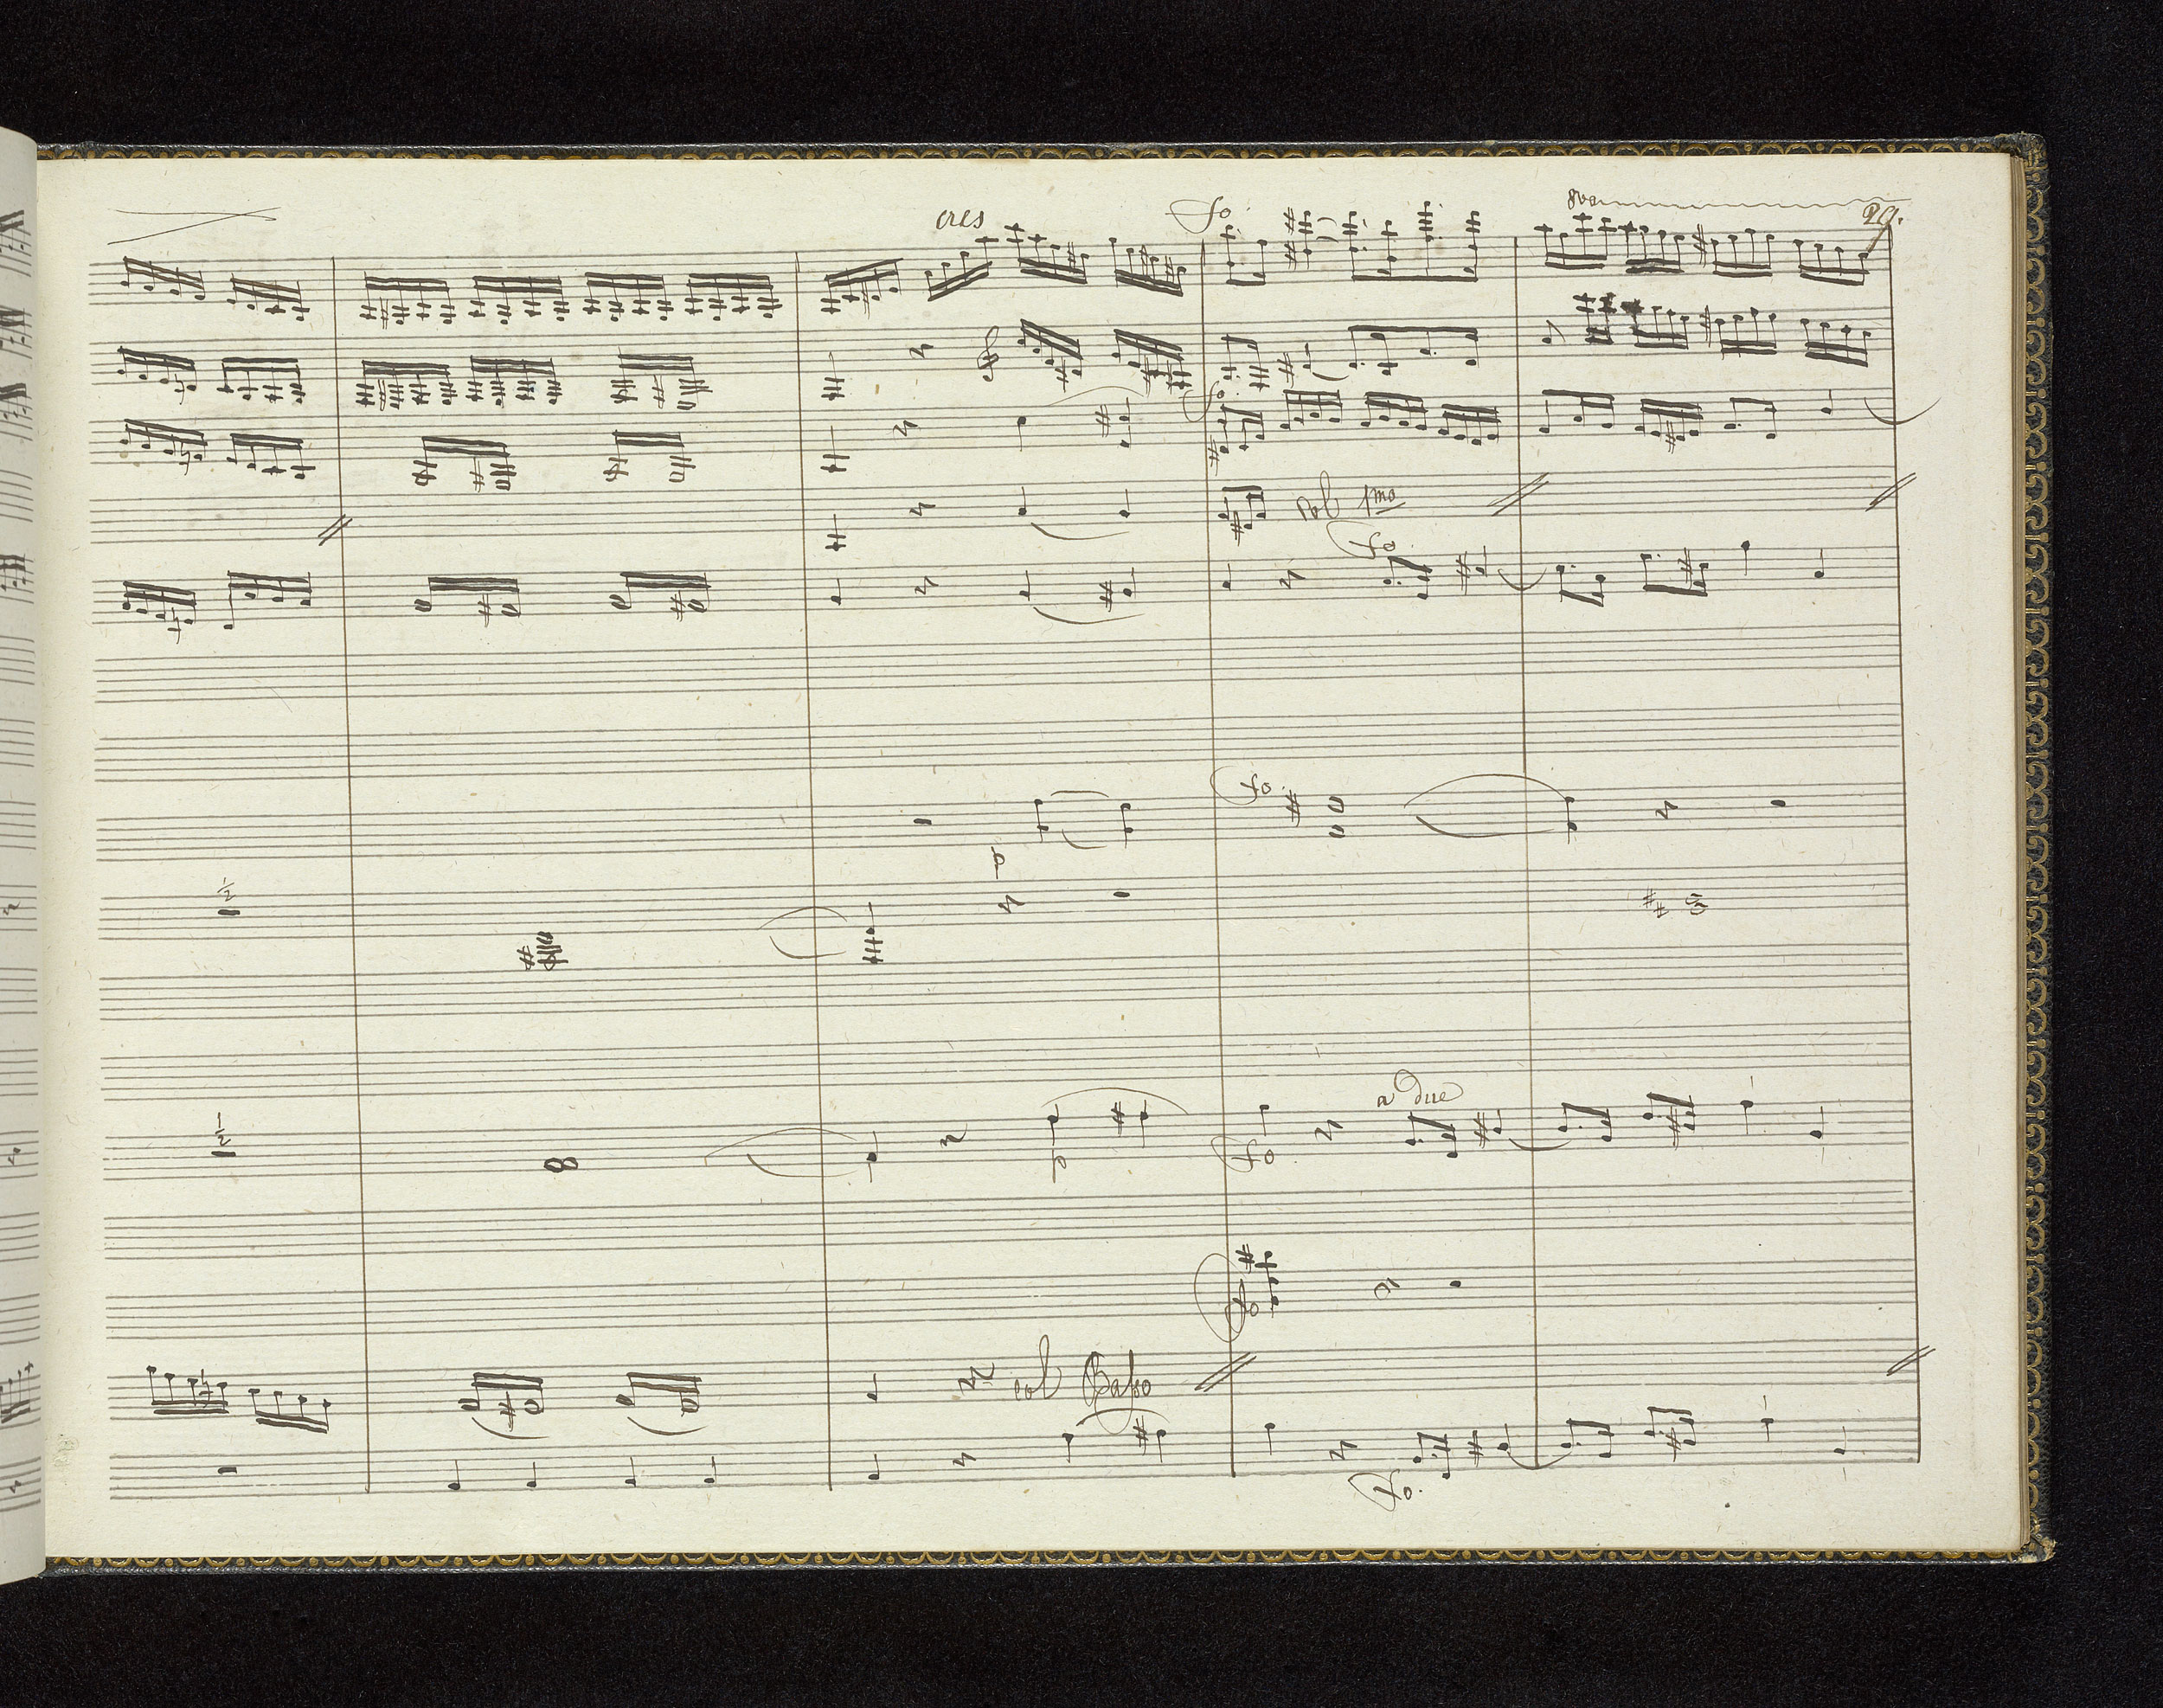 cres fo 8va 29.
fo
Col pmo
fo
fo
p
a due
p fo
fo
col Basso
fo.